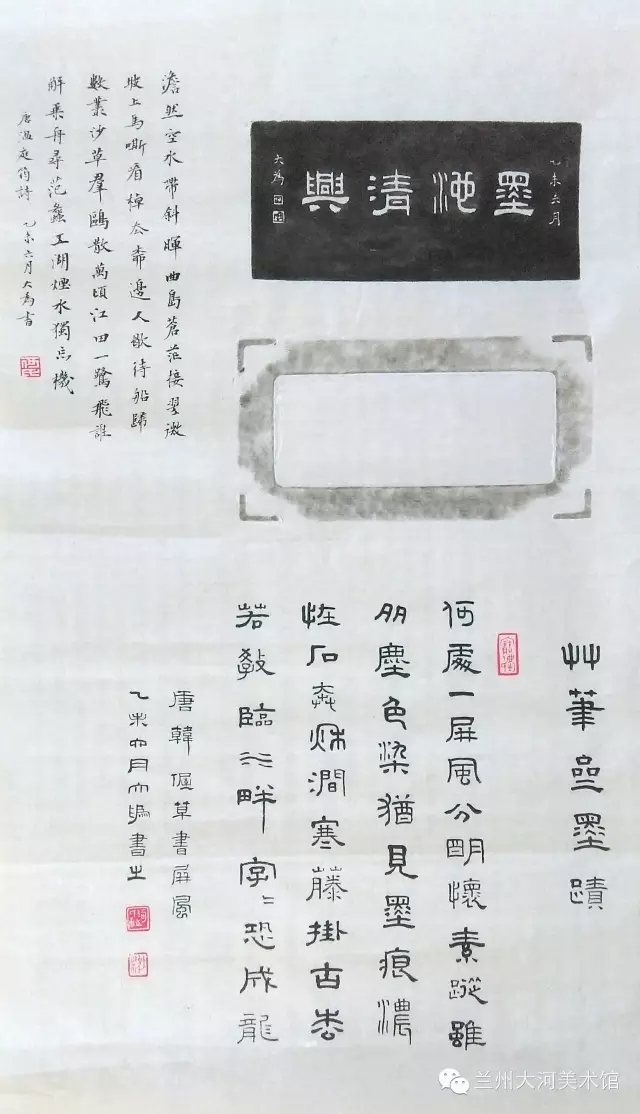 乙未六月
墨池清興
大為
澹然空水帶斜暉曲島蒼茫接翠微
坡上馬嘶看棹去柳邊人歇待船歸
數叢沙草羣鷗散萬頃江田一鷺飛誰
解乘舟尋范蠡五湖煙水獨忘機
唐温庭筠詩 乙未六月大為書
艸筆墨蹟
何處一屏風分明懷素蹤雖
多塵色染猶見墨痕濃
怪石奔秋澗寒藤掛古松
若教臨水畔字〻恐成龍
唐韓偓草書屏風
乙未六月大為書之
兰州大河美术馆